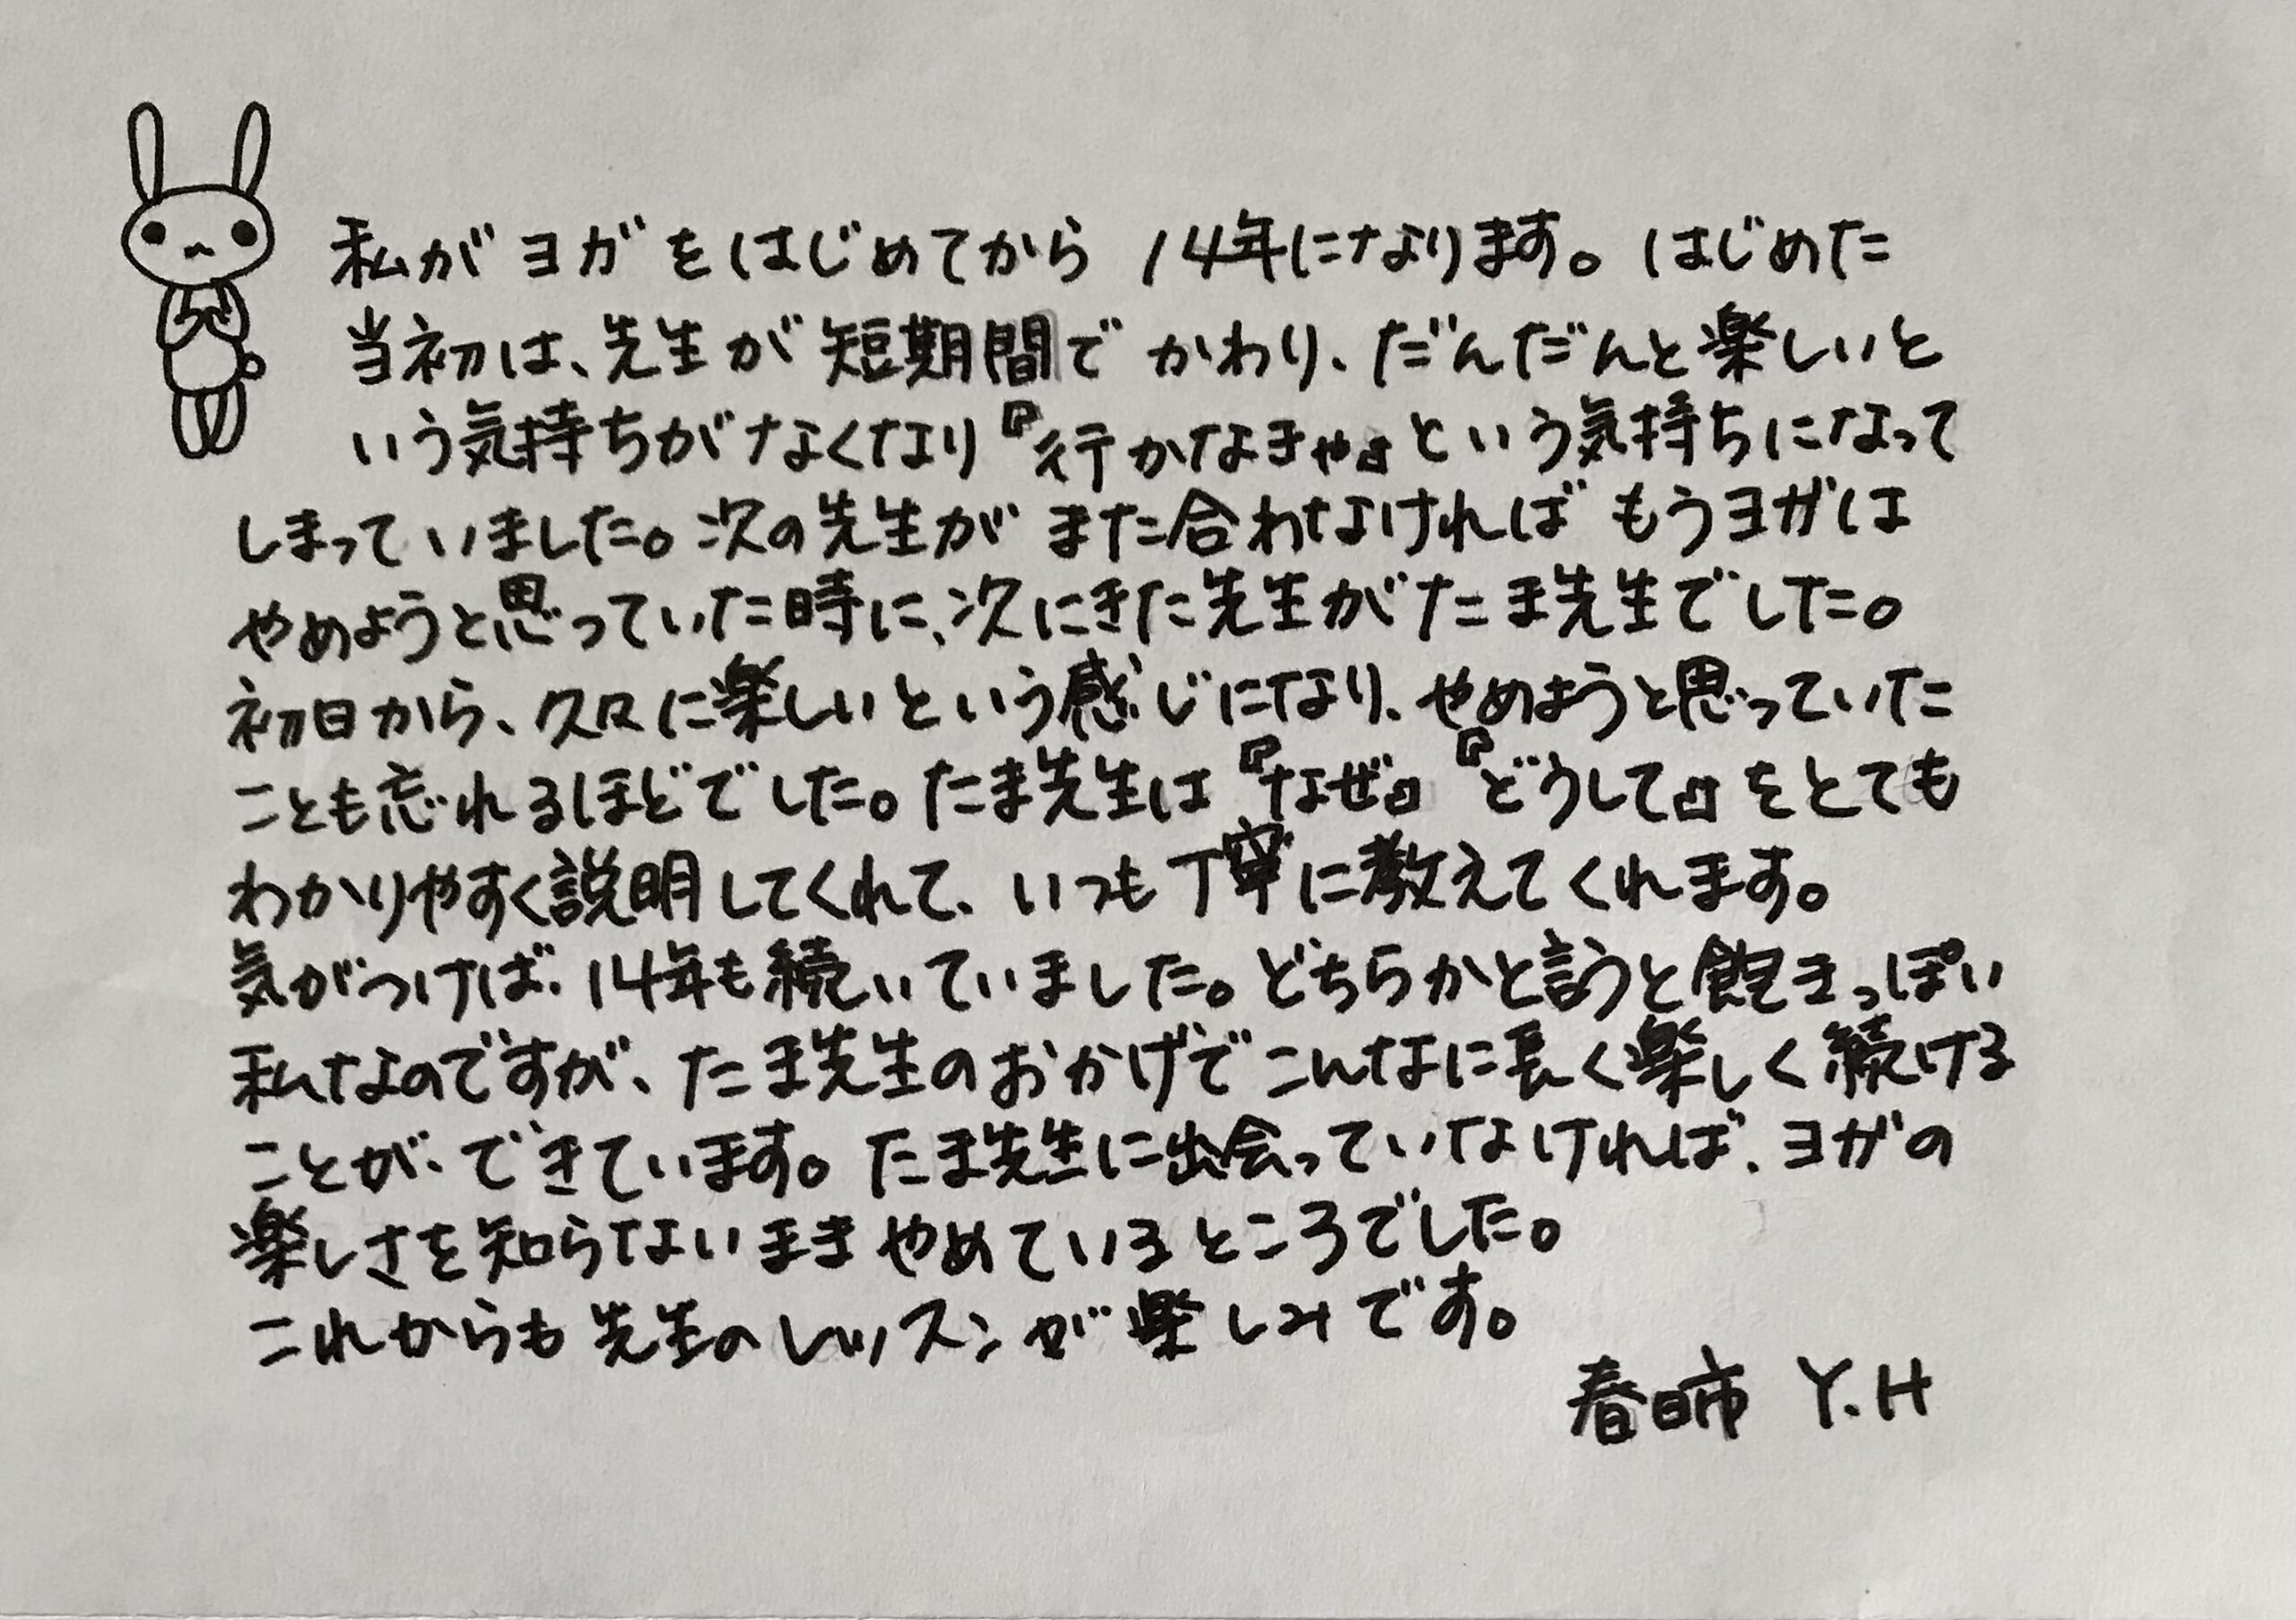 私がヨガをはじめてから 14年になります。はじめた
当初は、先生が短期間でかわり、だんだんと楽しいと
いう気持ちがなくなり『行かなきゃ』という気持ちになって
しまっていました。次の先生がまた合わなければもうヨガは
やめようと思っていた時に、次にきた先生がたま先生でした。
初日から、久々に楽しいという感じになり、やめようと思っていた
ことも忘れるほどでした。たま先生は『なぜ』『どうして』をとても
わかりやすく説明してくれて、いつも丁寧に教えてくれます。
気がつけば、14年も続いていました。どちらかと言うと飽きっぽい
私なのですが、たま先生のおかげでこんなに長く楽しく続ける
ことが、できています。たま先生に出会っていなければ、ヨガの
楽しさを知らないままやめているところでした。
これからも先生のレッスンが楽しみです。
春日市 Y.H